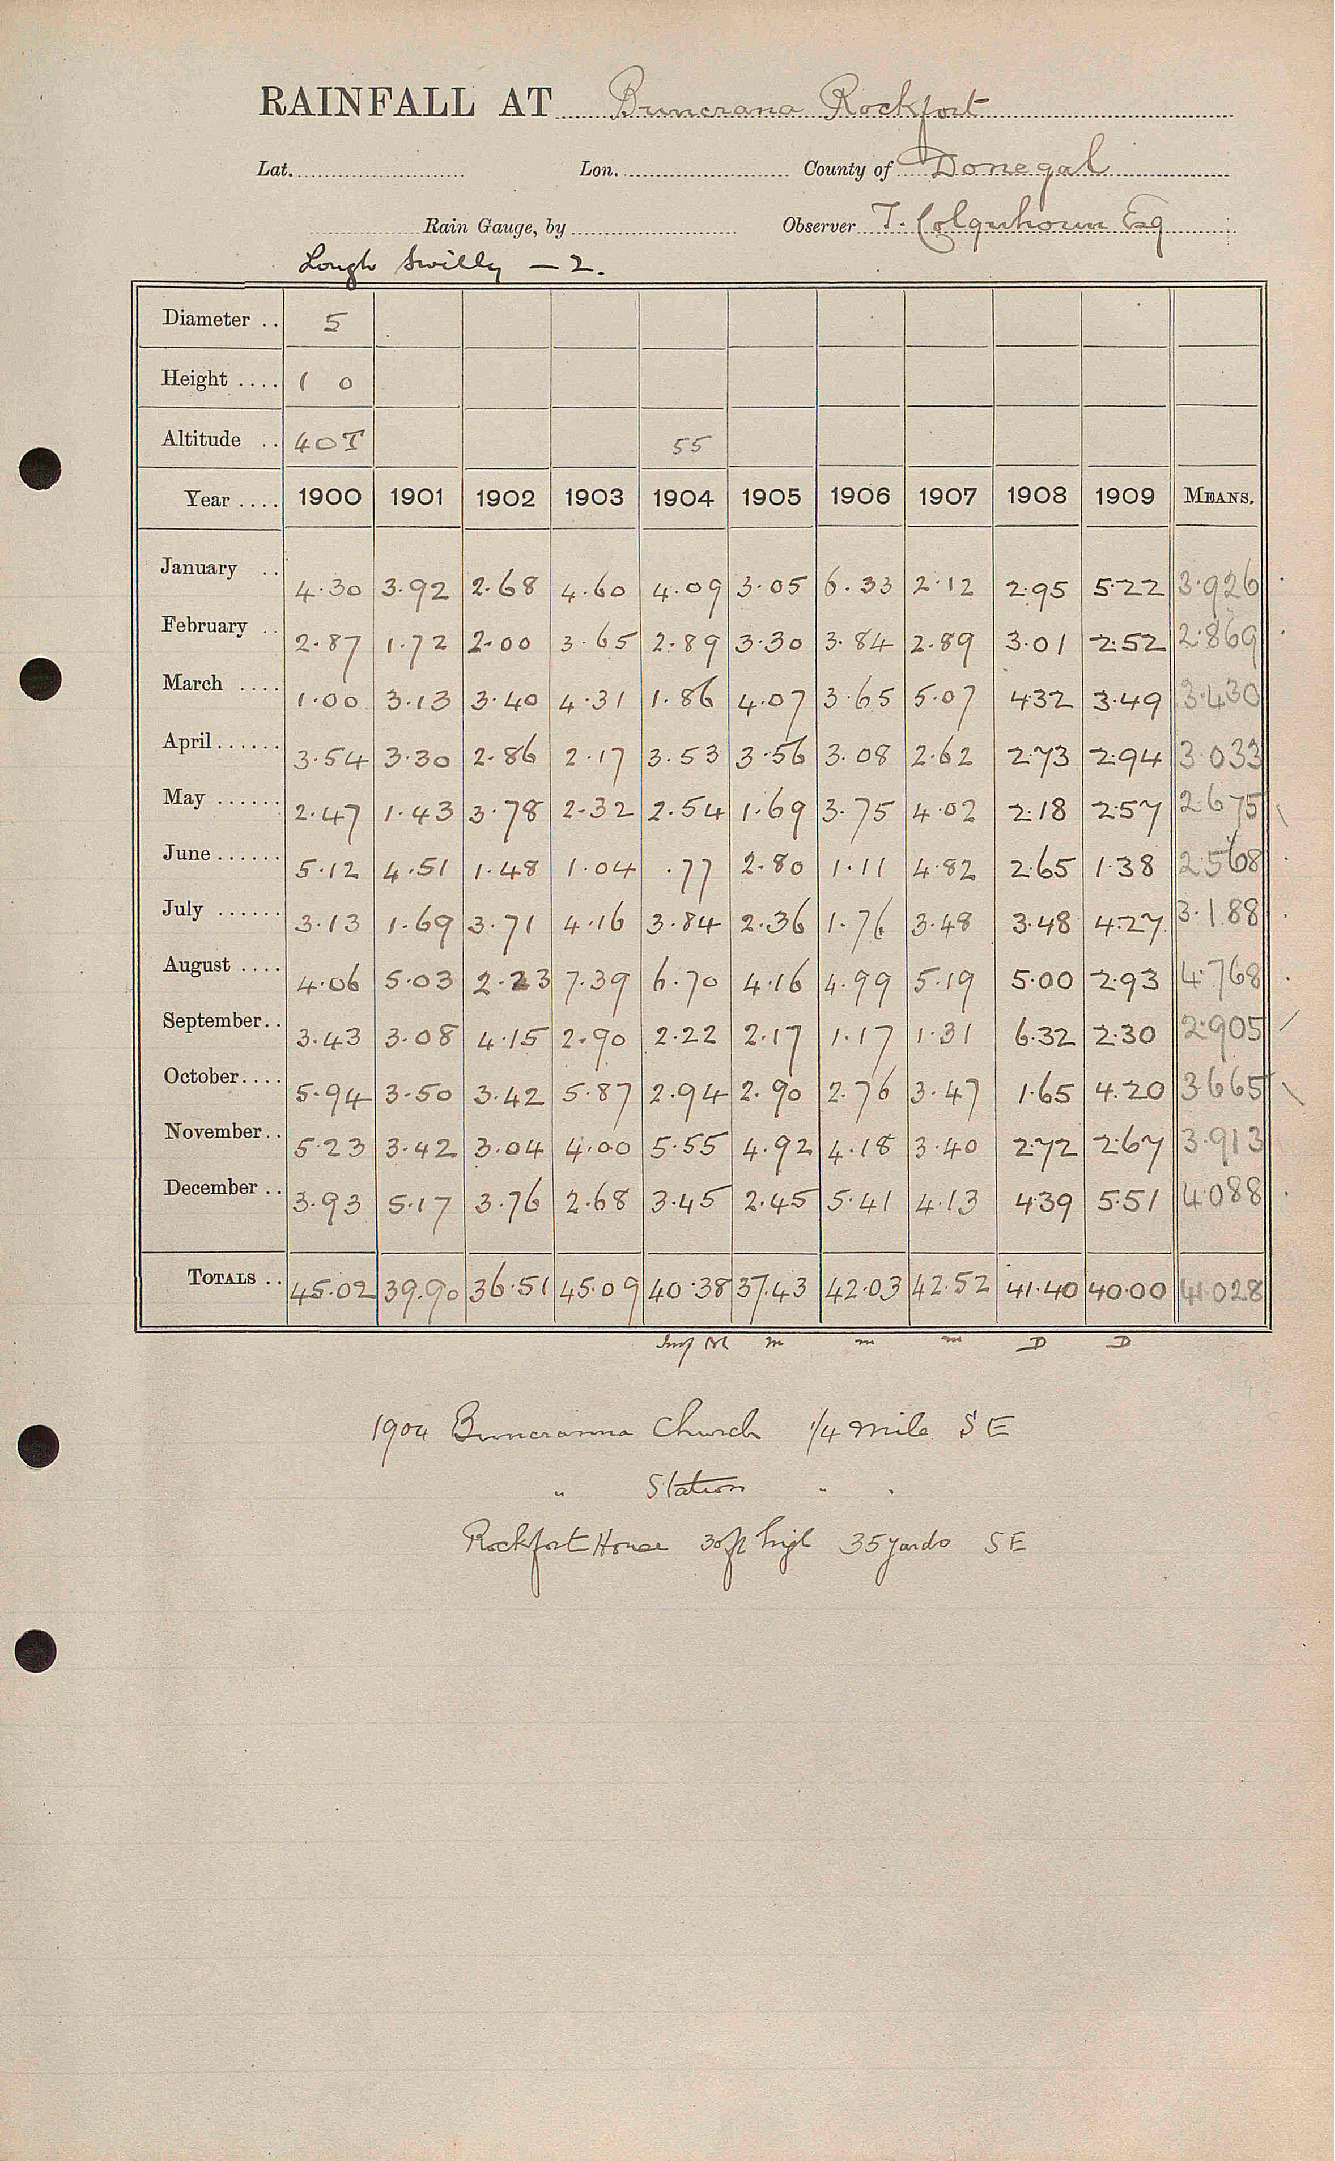 RAINFALL AT Buncrana Rockfort
Lat. Lon. County of Donegal
Rain Gauge, by Observer T. Colquhoun Esq
Lough Swilly — 2.
Diameter .. 5
Height .... 1 0
Altitude .. 40T 55
Year .... 1900 1901 1902 1903 1904 1905 1906 1907 1908 1909 MEANS.
January .. 4.30 3.92 2.68 4.60 4.09 3.05 6.33 2.12 2.95 5.22 3.926
February .. 2.87 1.72 2.00 3.65 2.89 3.30 3.84 2.89 3.01 2.52 2.869
March .... 1.00 3.13 3.40 4.31 1.86 4.07 3.65 5.07 4.32 3.49 3.430
April ...... 3.54 3.30 2.86 2.17 3.53 3.56 3.08 2.62 2.73 2.94 3.033
May ...... 2.47 1.43 3.78 2.32 2.54 1.69 3.75 4.02 2.18 2.57 2.675
June ...... 5.12 4.51 1.48 1.04 .77 2.80 1.11 4.82 2.65 1.38 2.568
July ...... 3.13 1.69 3.71 4.16 3.84 2.36 1.76 3.48 3.48 4.27 3.188
August .... 4.06 5.03 2.23 7.39 6.70 4.16 4.99 5.19 5.00 2.93 4.768
September .. 3.43 3.08 4.15 2.90 2.22 2.17 1.17 1.31 6.32 2.30 2.905
October .... 5.94 3.50 3.42 5.87 2.94 2.90 2.76 3.47 1.65 4.20 3.665
November .. 5.23 3.42 3.04 4.00 5.55 4.92 4.18 3.40 2.72 2.67 3.913
December .. 3.93 5.17 3.76 2.68 3.45 2.45 5.41 4.13 4.39 5.51 4.088
TOTALS .. 45.02 39.90 36.51 45.09 40.38 37.43 42.03 42.52 41.40 40.00 41.028
m m m D D
1904 Buncranna Church 1/4 mile SE
" Station " "
Rockfort House 30ft high 35 yards SE